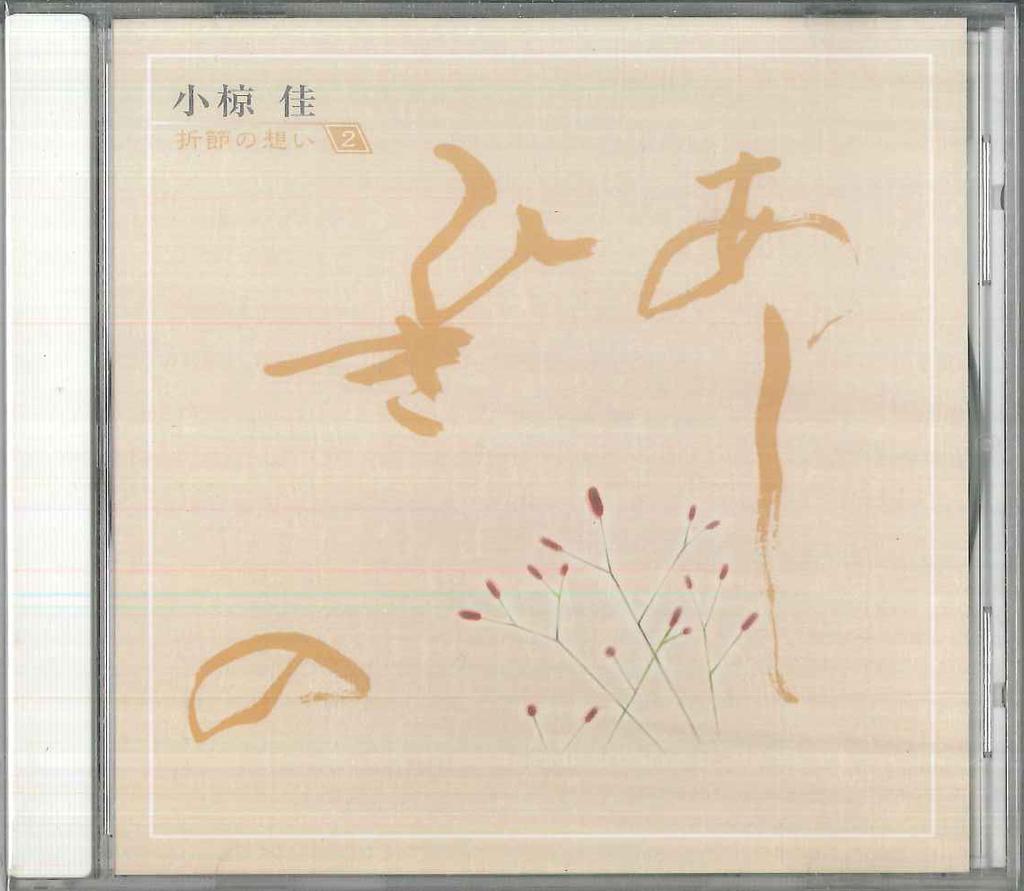 小椋 佳
折節の想い 2
あし
ひき
の